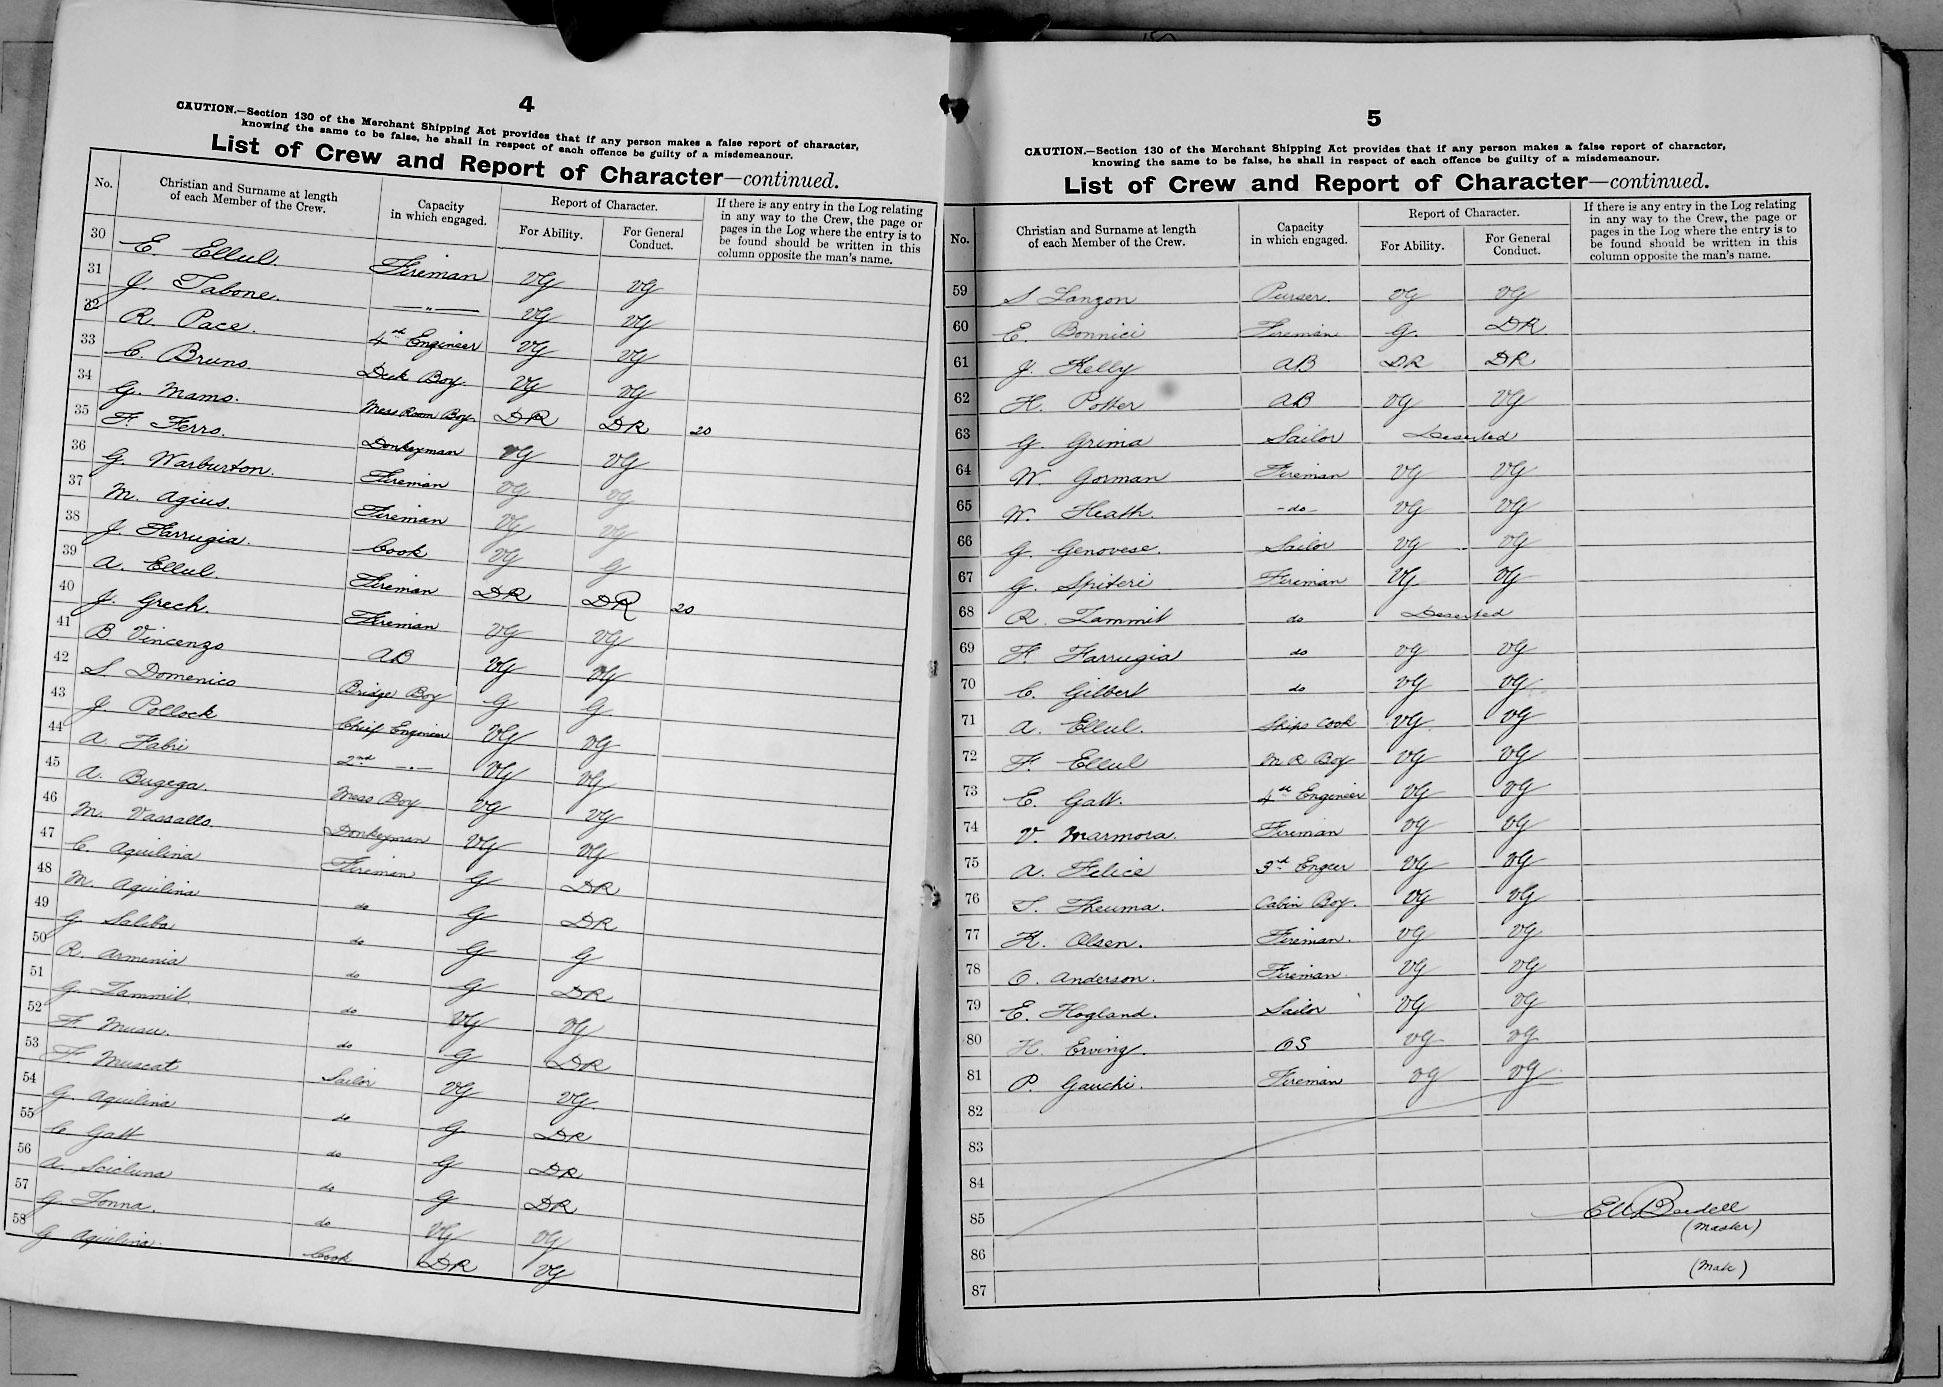 4
CAUTION.—Section 130 of the Merchant Shipping Act provides that if any person makes a false report of character,
knowing the same to be false, he shall in respect of each offence be guilty of a misdemeanour.
List of Crew and Report of Character—continued.
No. Christian and Surname at length of each Member of the Crew. Capacity in which engaged. Report of Character. For Ability. For General Conduct. If there is any entry in the Log relating in any way to the Crew, the page or pages in the Log where the entry is to be found should be written in this column opposite the man's name.
30 E. Ellul. Fireman VG VG
31 J. Tabone. —"— VG VG
32 R. Pace. 4th Engineer VG VG
33 C. Bruno. Deck Boy VG VG
34 G. Mamo. Mess Room Boy. DR DR 20
35 F. Ferro. Donkeyman VG VG
36 G. Warburton. Fireman VG VG
37 M. Agius. Fireman VG VG
38 J. Farrugia. Cook VG G
39 A. Ellul. Fireman DR DR 20
40 J. Grech. Fireman VG VG
41 B. Vincenzo AB VG VG
42 S. Domenico Bridge Boy G G
43 J. Pollock Chief Engineer VG VG
44 A. Fabri 2nd —"— VG VG
45 A. Bugega. Mess Boy VG VG
46 M. Vassallo. Donkeyman VG VG
47 C. Aquilina Fireman G DR
48 M. Aquilina do G DR
49 G. Saliba do G G
50 R. Armenia do G DR
51 G. Zammit do VG VG
52 F. do G DR
53 F. Muscat Sailor VG VG.
54 G. Aquilina do G DR
55 C. Gatt do G DR
56 A. Scicluna do G DR
57 G. Tonna. do VG VG
58 G Aquilina. Cook DR VG
5
CAUTION.—Section 130 of the Merchant Shipping Act provides that if any person makes a false report of character,
knowing the same to be false, he shall in respect of each offence be guilty of a misdemeanour.
List of Crew and Report of Character—continued.
No. Christian and Surname at length of each Member of the Crew. Capacity in which engaged. Report of Character. For Ability. For General Conduct. If there is any entry in the Log relating in any way to the Crew, the page or pages in the Log where the entry is to be found should be written in this column opposite the man's name.
59 S Langon Purser. VG VG
60 E. Bonnici Fireman G. DR
61 J. Kelly AB DR DR
62 H. Potter AB VG VG
63 G. Grima Sailor Deserted
64 W. Gorman Fireman VG VG
65 W. Heath. -do- VG VG
66 G. Genovese. Sailor VG VG
67 G. Spiteri Fireman VG VG
68 R. Zammit do Deserted
69 F. Farrugia do VG VG
70 C. Gilbert do VG VG
71 A. Ellul. Ships Cook VG VG
72 F. Ellul M R Boy VG VG
73 E. Gatt. 4th Engineer VG VG
74 V. Marmora. Fireman VG VG
75 A. Felice 3rd Engeer VG VG
76 T. Theuma. Cabin Boy. VG VG
77 K. Olsen. Fireman. VG VG
78 O. Anderson. Fireman VG VG
79 E. Hogland. Sailor VG VG
80 H. Erving. OS VG VG
81 P. Gauchi. Fireman VG VG
82
83
84
85 (Master)
86 (Mate)
87